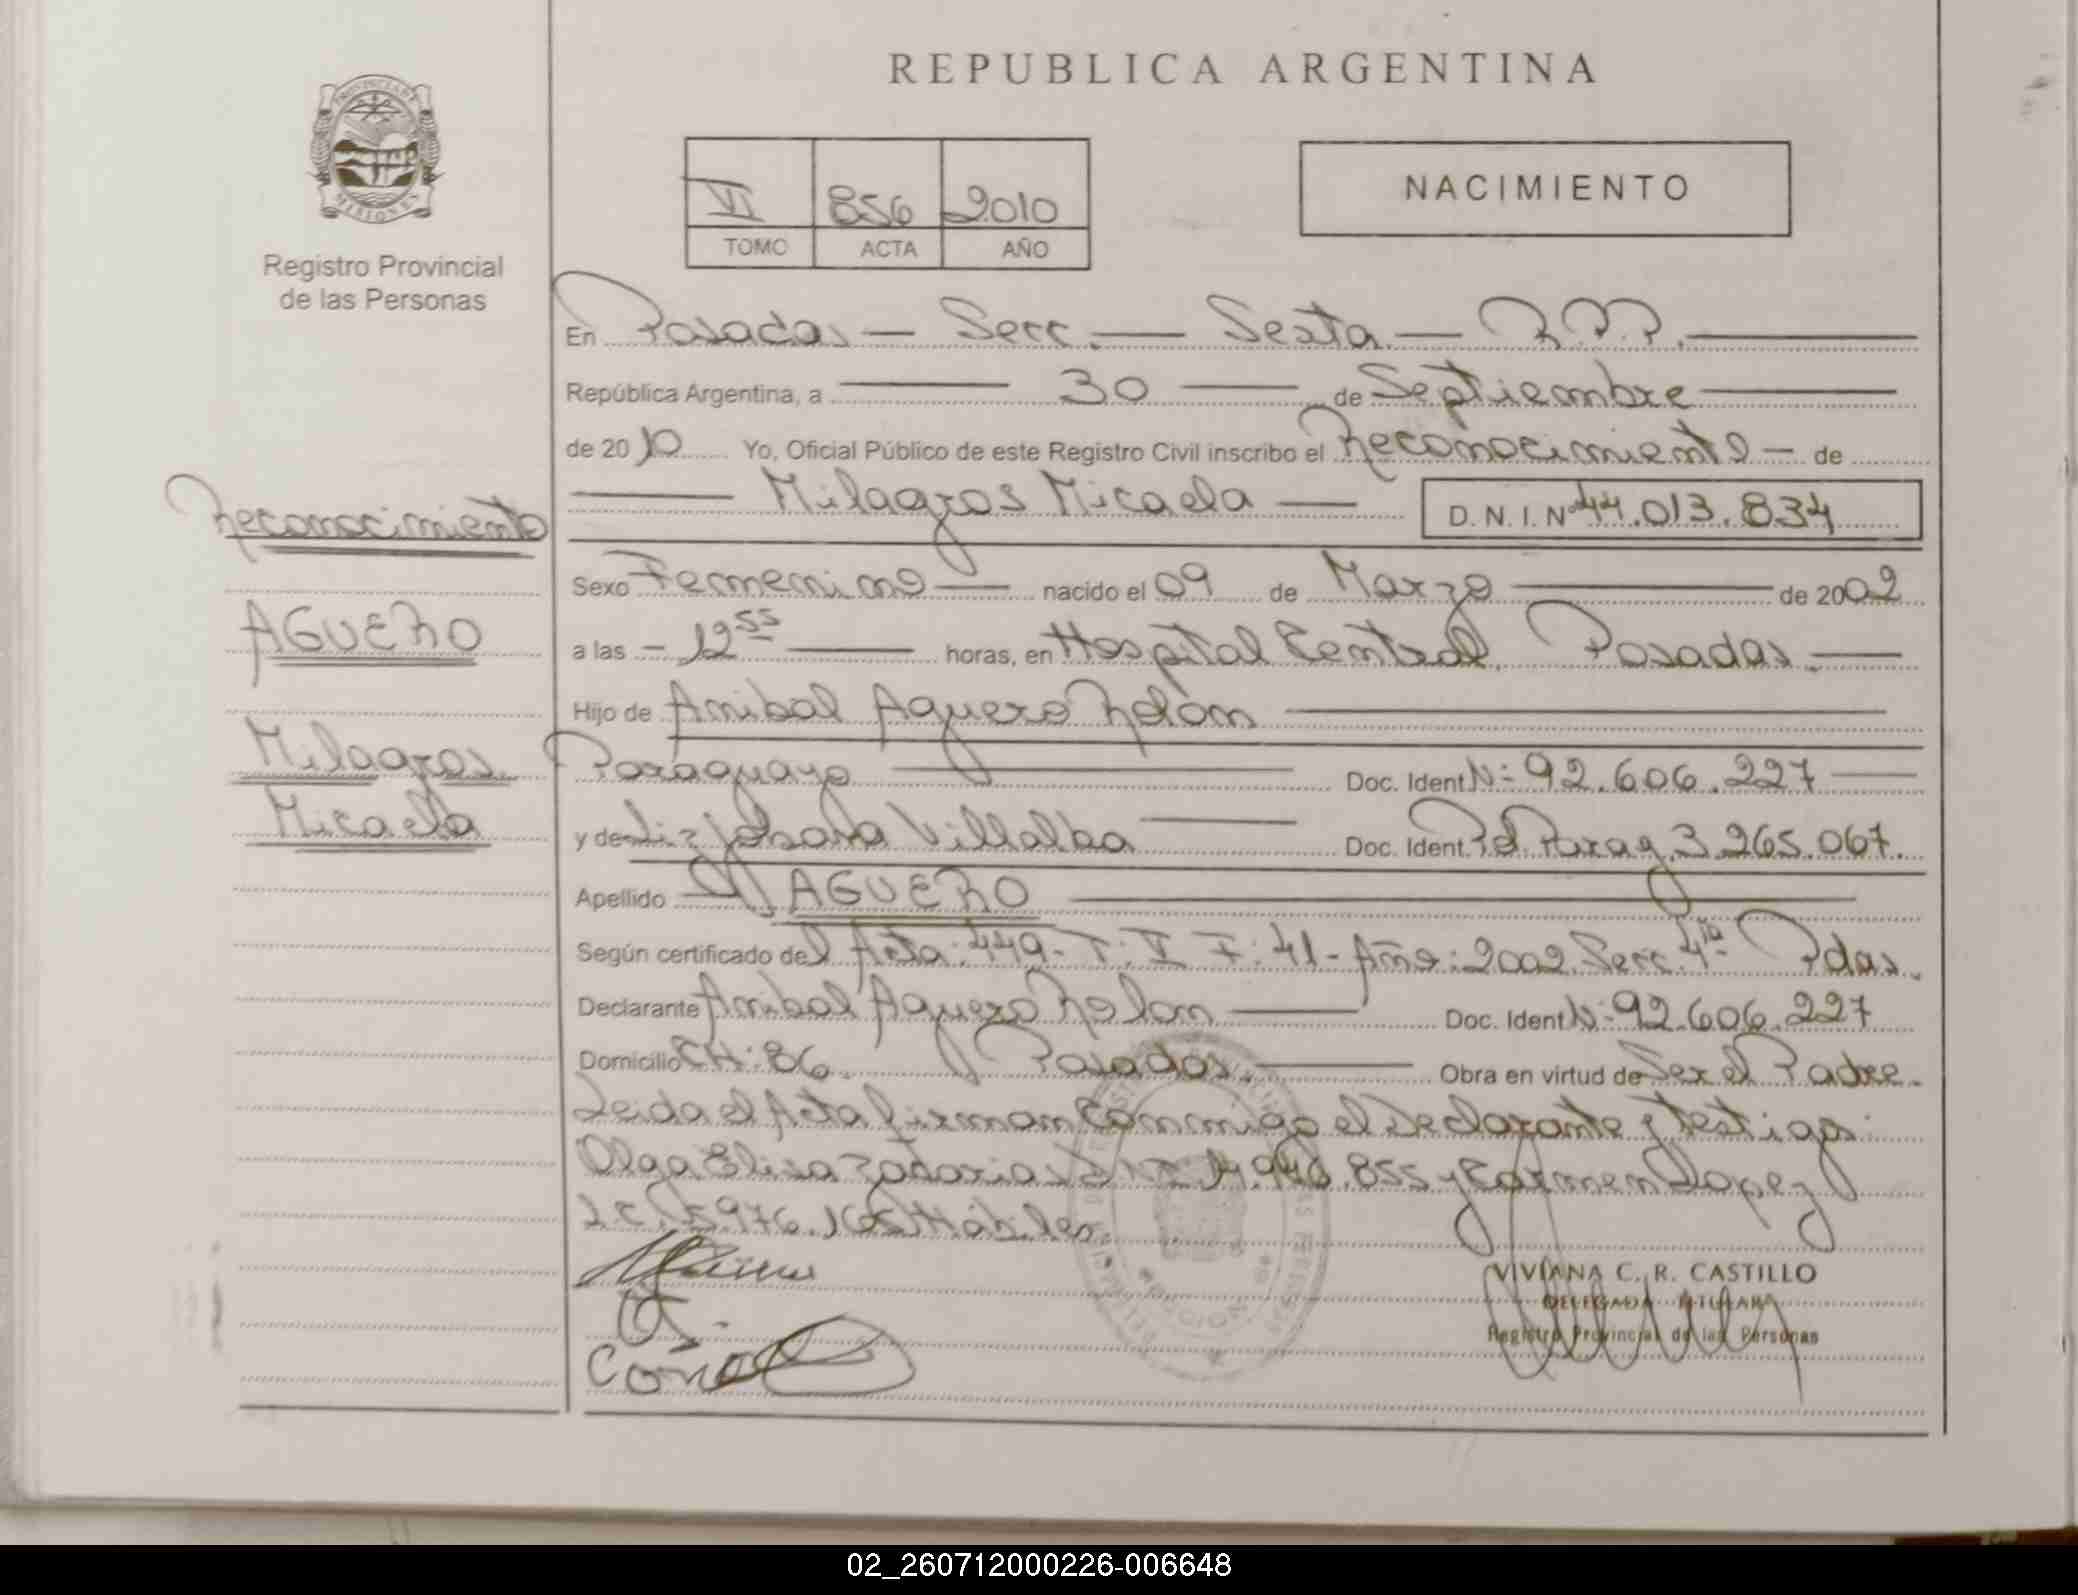 REPUBLICA ARGENTINA
PROVINCIA DE
MISIONES
Registro Provincial
de las Personas
VI 856 2010
TOMO ACTA AÑO
NACIMIENTO
En Posadas — Secc. — Sexta — R.P.P.
República Argentina, a — 30 — de Septiembre
de 2010 Yo, Oficial Público de este Registro Civil inscribo el Reconocimiento — de
— Milagros Micaela — D.N.I. Nº 44.013.834
Reconocimiento
AGUERO
Milagros
Micaela
Sexo Femenino — nacido el 09 de Marzo — de 2002
a las — 12 55 — horas, en Hospital Central. Posadas. —
Hijo de Anibal Aguero Rolon —
Paraguayo — Doc. Ident. Nº: 92.606.227 —
y de Liz Josana Villalba — Doc. Ident. Pd. Parag. 3.265.067.
Apellido — AGUERO —
Según certificado del Acta: 449- T: II F: 41- Año: 2002. Secc. 4ta Pdas.
Declarante Anibal Aguero Rolon — Doc. Ident. Nº: 92.606.227
Domicilio CH: 86. Posadas. — Obra en virtud de Ser el Padre.
Leida el Acta firman Conmigo el Declarante y testigos:
Olga Elisa 14.946.855 y Carmen Lopez
L.C. 976. Hábiles.
VIVIANA C. R. CASTILLO
DELEGADA TITULAR
Registro Provincial de las Personas
02_260712000226-006648